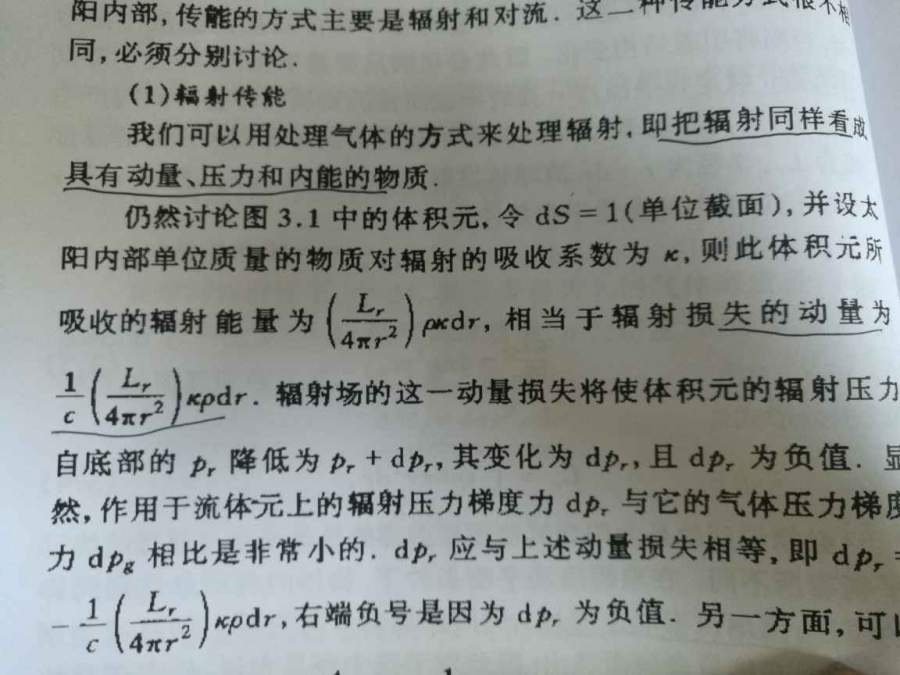 阳内部,传能的方式主要是辐射和对流.这二种传能方式很不相
同,必须分别讨论.
(1)辐射传能
我们可以用处理气体的方式来处理辐射,即把辐射同样看成
具有动量、压力和内能的物质.
仍然讨论图 3.1 中的体积元,令 dS = 1(单位截面),并设太
阳内部单位质量的物质对辐射的吸收系数为 κ,则此体积元所
吸收的辐射能量为 (L_r/4πr²) ρκdr,相当于辐射损失的动量为
1/c (L_r/4πr²) κρdr.辐射场的这一动量损失将使体积元的辐射压力
自底部的 p_r 降低为 p_r + dp_r,其变化为 dp_r,且 dp_r 为负值.显
然,作用于流体元上的辐射压力梯度力 dp_r 与它的气体压力梯度
力 dp_g 相比是非常小的.dp_r 应与上述动量损失相等,即 dp_r =
- 1/c (L_r/4πr²) κρdr,右端负号是因为 dp_r 为负值.另一方面,可